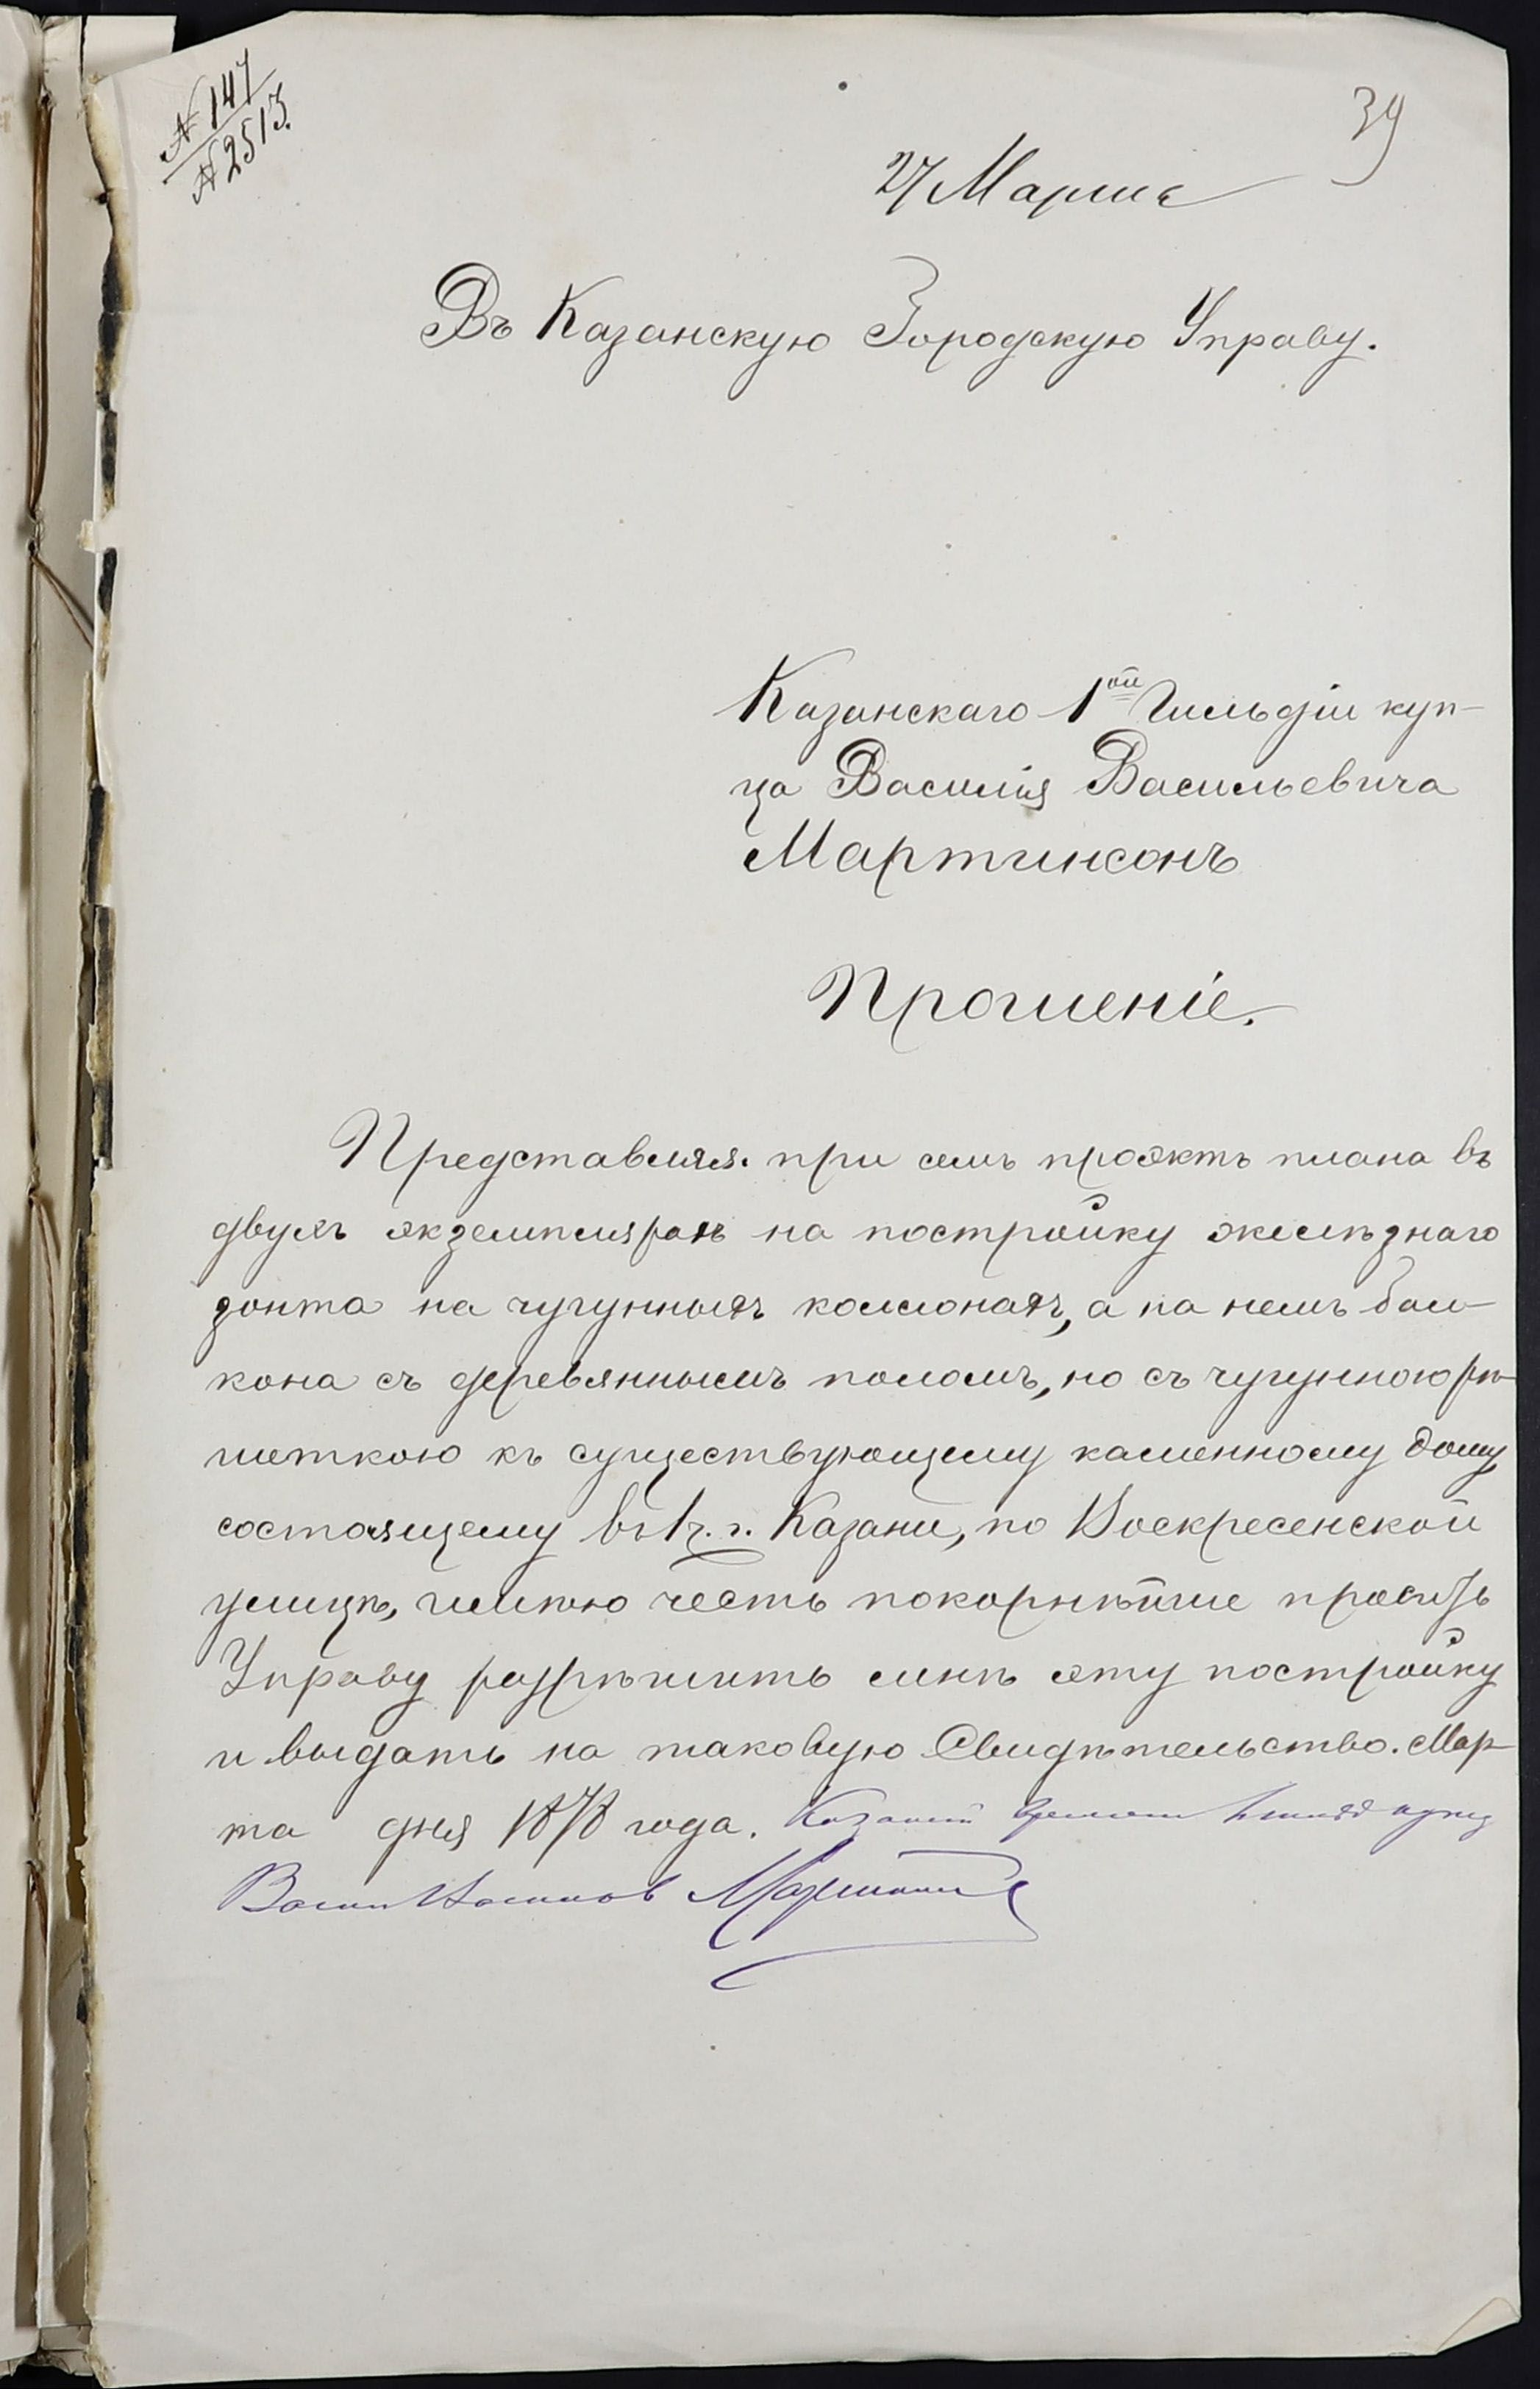 № 147
№ 2513.
39
27 Марта
Въ Казанскую Городскую Управу.
Казанскаго 1ой Гильдіи куп-
ца Василія Васильевича
Мартинсонъ
Прошеніе.
Представляя при семъ проэктъ плана въ
двухъ экземплярахъ на постройку желѣзнаго
зонта на чугунныхъ колонахъ, а на немъ бал-
кона съ деревяннымъ поломъ, но съ чугунною рѣ-
шеткою къ существующему каменному дому,
состоящему въ 1 ч. г. Казани, по Воскресенской
улицѣ, имѣю честь покорнѣйше просить
Управу разрѣшить мнѣ эту постройку
и выдать на таковую Свидѣтельство. Мар-
та дня 1878 года. Казанскій купецъ
Мартинсонъ